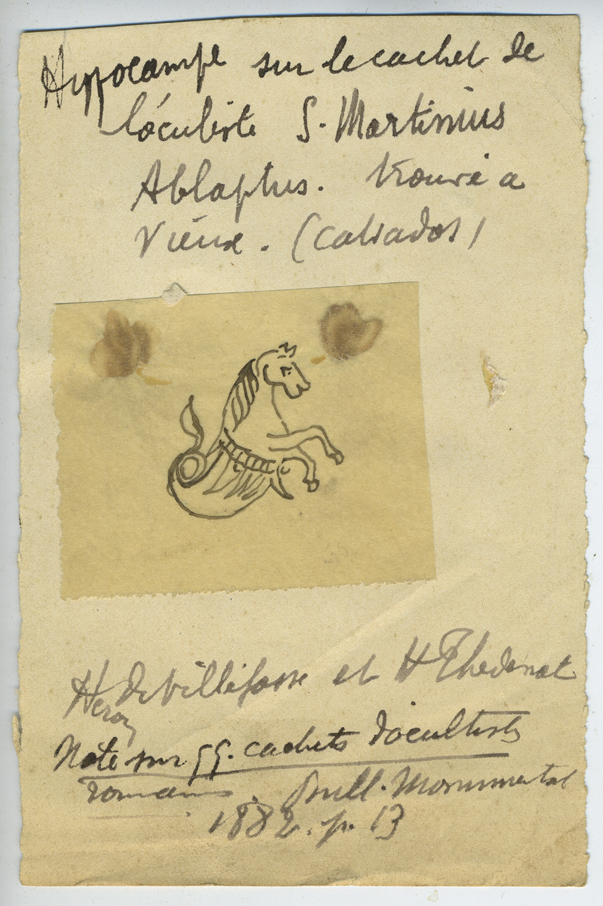 Hyppocampe sur le cachet de
l'oculiste S. Martinius
Ablaptus. trouvé a
Vieux. (Calvados)
Heron de Villefosse et H Thedenat
Note sur qq. cachets d'oculistes
romains. Bull. Monumental
1882. p. 13